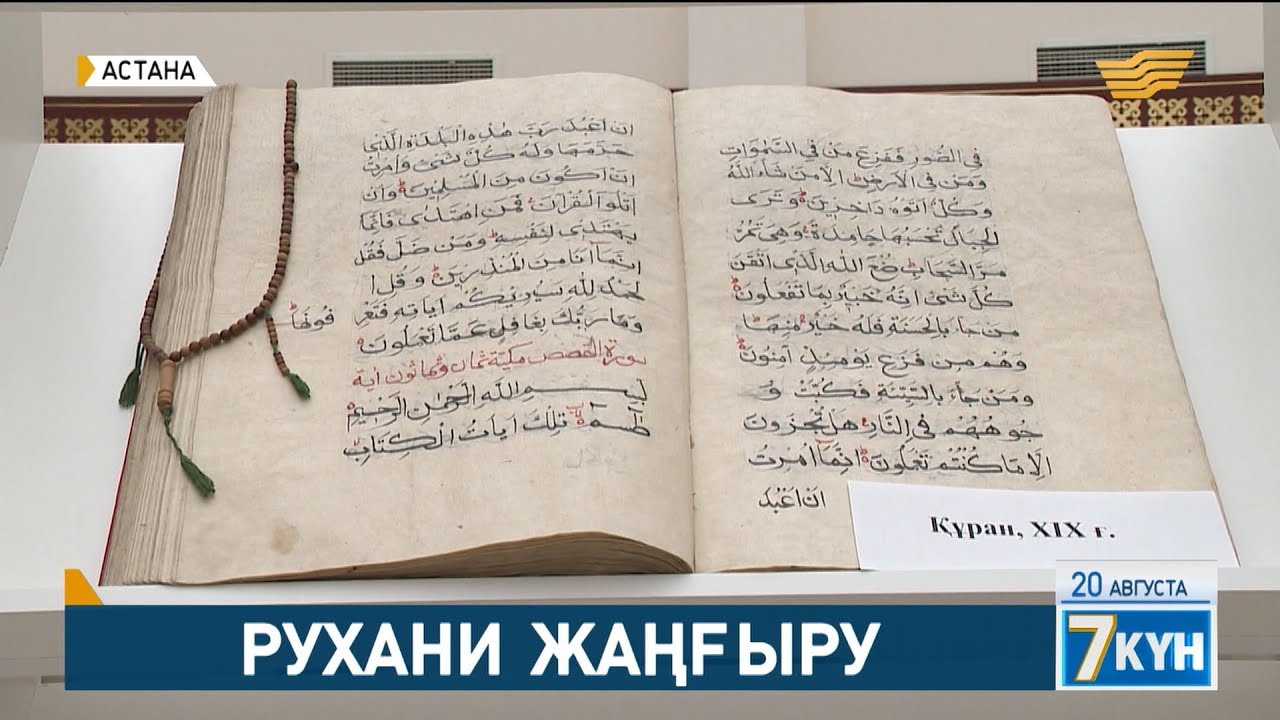 АСТАНА
في الصور ففزع من في السموات
ومن في الارض الا من شاء الله
وكل اتوه داخرين وترى
الجبال تحسبها جامدة وهي تمر
مر السحاب صنع الله الذي اتقن
كل شئ انه خبير بما تفعلون
من جاء بالحسنة فله خير منها
وهم من فزع يومئذ آمنون
ومن جاء بالسيئة فكبت و
جوههم في النار هل تجزون
الا ما كنتم تعملون انما امرت
ان اعبد
ان اعبد رب هذه البلدة الذي
حرمها وله كل شئ وامرت
ان اكون من المسلمين وان
اتلوا القرآن فمن اهتدى فانما
يهتدى لنفسه ومن ضل فقل
انما انا من المنذرين وقل ا
لحمد لله سيريكم اياته فتعر
فونها
وما ربك بغافل عما تعملون
سورة القصص مكية ثمان وثمانون اية
بسم الله الرحمن الرحيم
طسم تلك ايات الكتاب
Құран, XIX ғ.
РУХАНИ ЖАҢҒЫРУ
20 АВГУСТА
7 КҮН